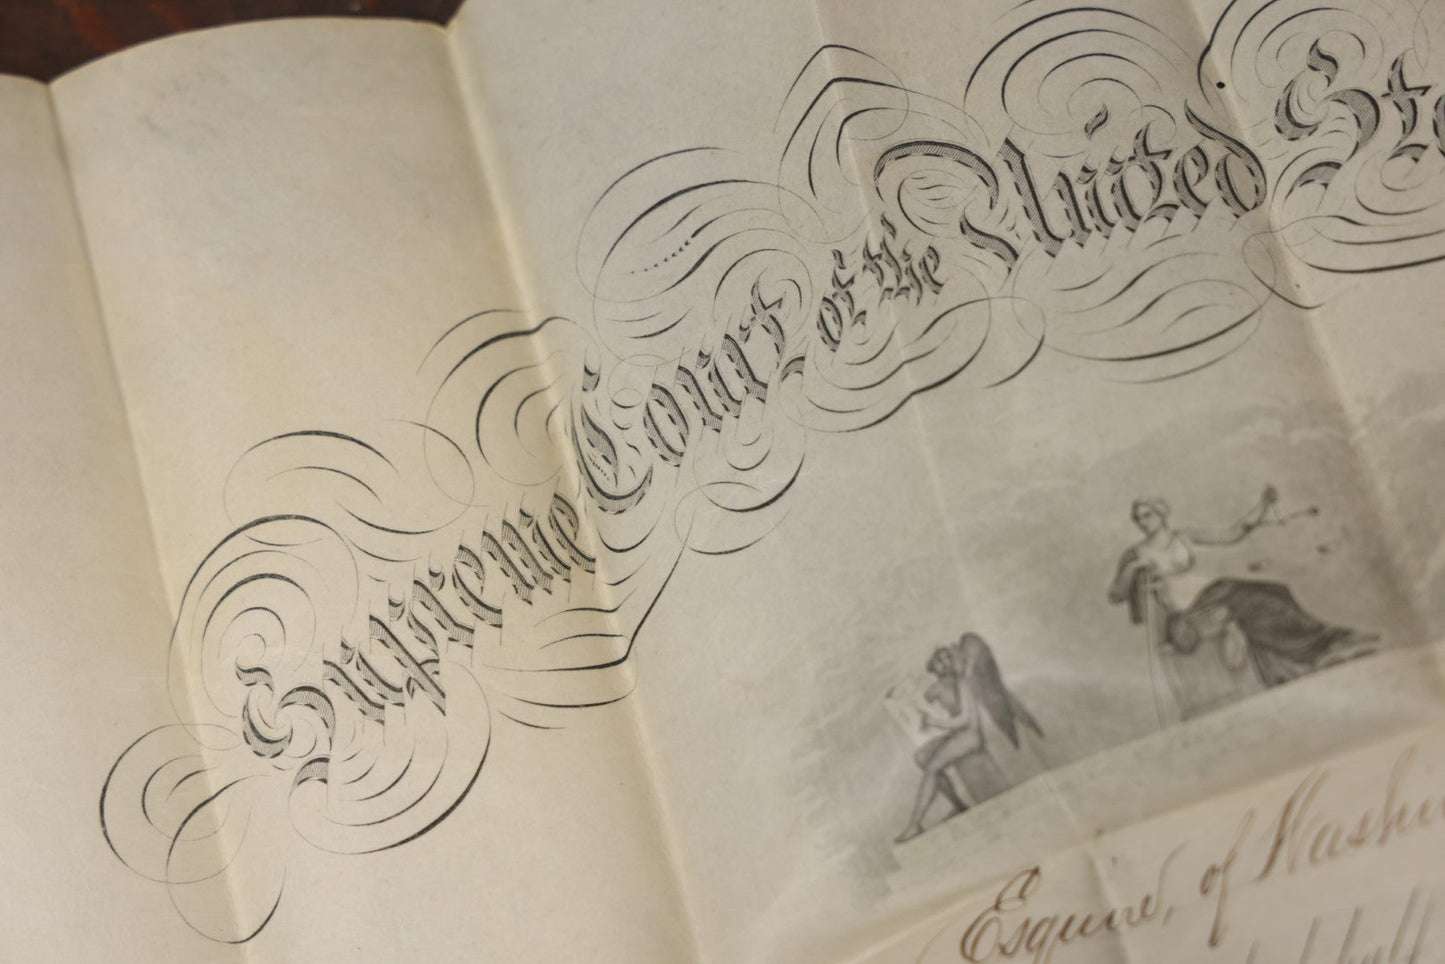 Supreme Court of the United Sta
Esquire, of Washi
half